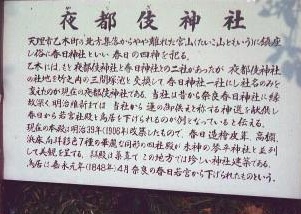 夜都伎神社
天理市乙木町の北方集落からやや離れた宮山(たいこ山ともいう)に鎮座
し俗に春日神社といい春日の四神を祀る。
乙木には、もと夜都伎神社と春日神社との二社があったが夜都伎神社
の社地を竹之内の三間塚池と交換して春日神社一社にし社名のみを
変えたのが現在の夜都伎神社である。当社は昔から奈良春日神社に縁
故深く明治維新までは当社から蓮の御供えと称する神饌を献供し
春日から若宮社殿と鳥居を下げられるのが例となっていると伝える。
現在の本殿は明治39年(1906年)改築したもので、春日造桧皮葺、高欄、
浜床向拝彩色7種の華麗な同形の四社殿が末神の琴平神社と並列
して美観を呈する。拝殿は萱葺でこの地方では珍しい神社建築である。
鳥居は嘉永元年(1848年)4月奈良の春日若宮から下げられたものという。